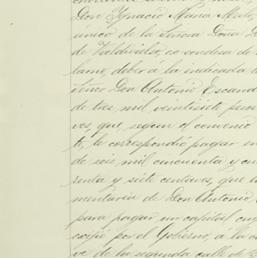 Don Ignacio Maria
unico de la Señora Doña
de Valdivielso ex condesa de
lamo, deberá la indicada
señor Don Antonio Escand
de tres mil veintisiete pesos
ves, que, segun el convenio
to, le correspondió pagar en
de seis mil cincuenta y cua
renta y siete centavos, que la
mentaria de Don Antonio
para pagar un capital que
por el Gobierno, á la
ve de la segunda calle de